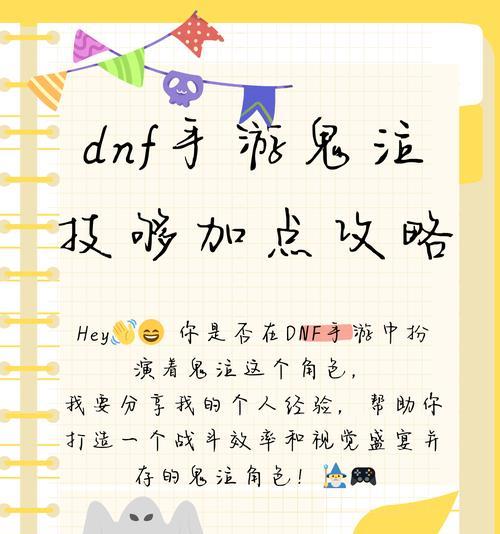 dnf手游鬼泣
技够加点攻略
Hey👋😄 你是否在DNF手游中扮
演着鬼泣这个角色，
我要分享我的个人经验，帮助你
打造一个战斗效率和视觉盛宴并
存的鬼泣角色！🧙🎮